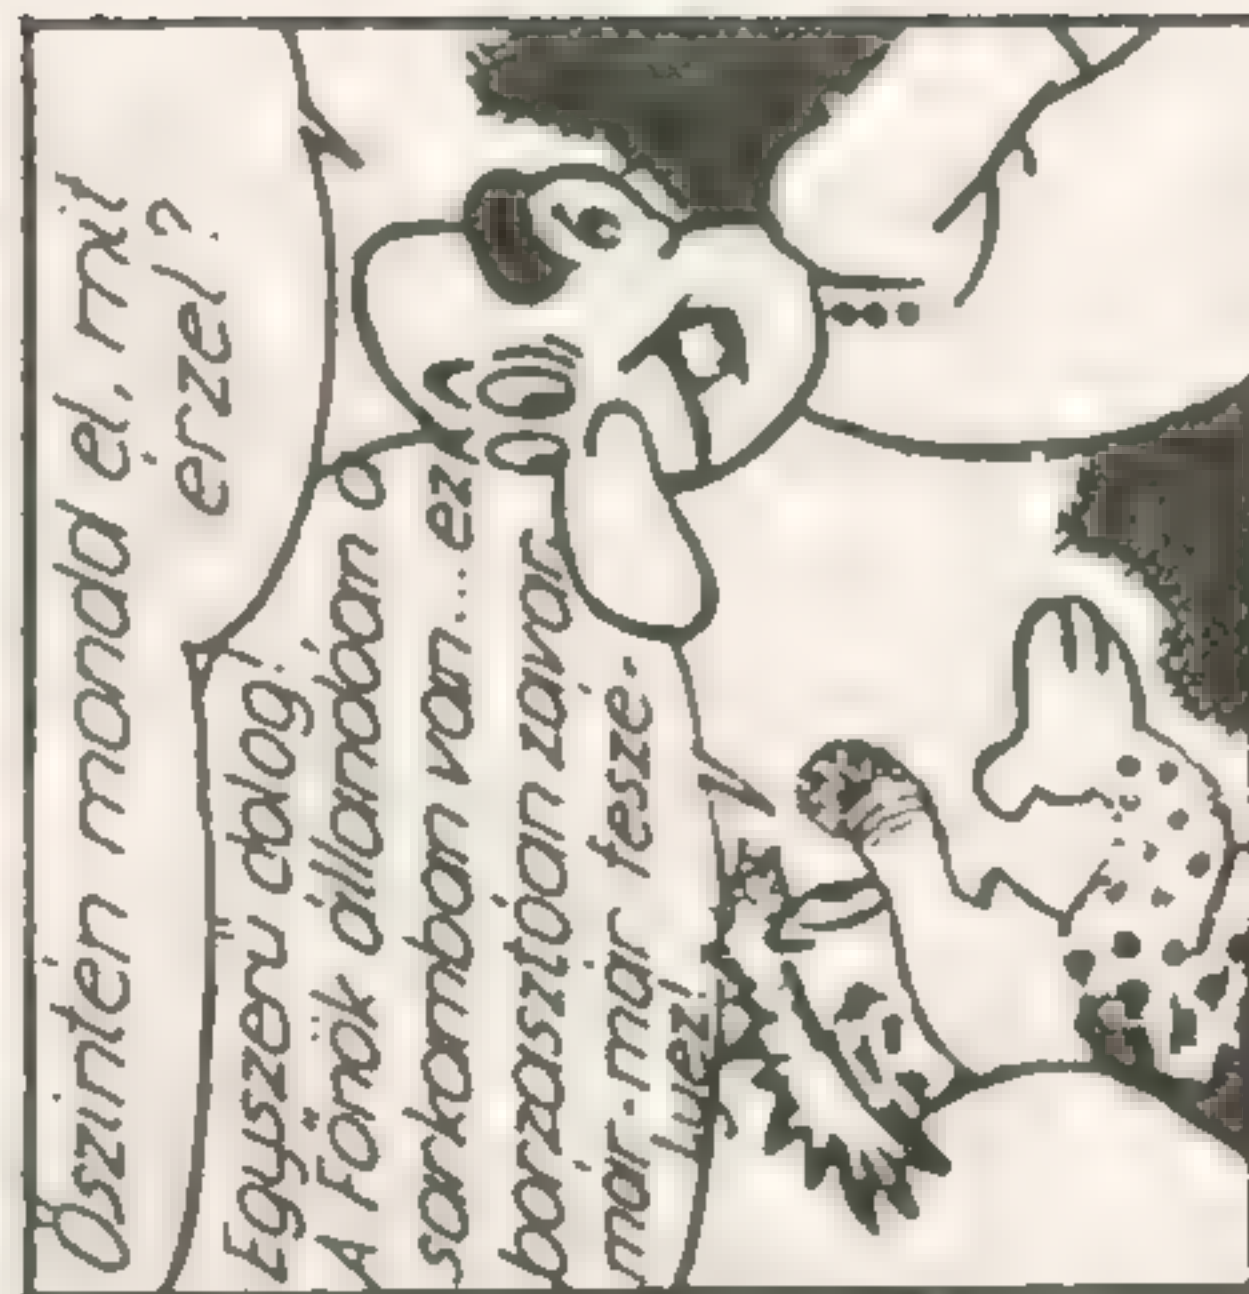 Őszintén mondd el, mit
érzel?
Egyszerű dolog!
A Főnök állandóan a
sarkamban van... ez
borzasztóan zavar,
már-már fesze-
lyez!